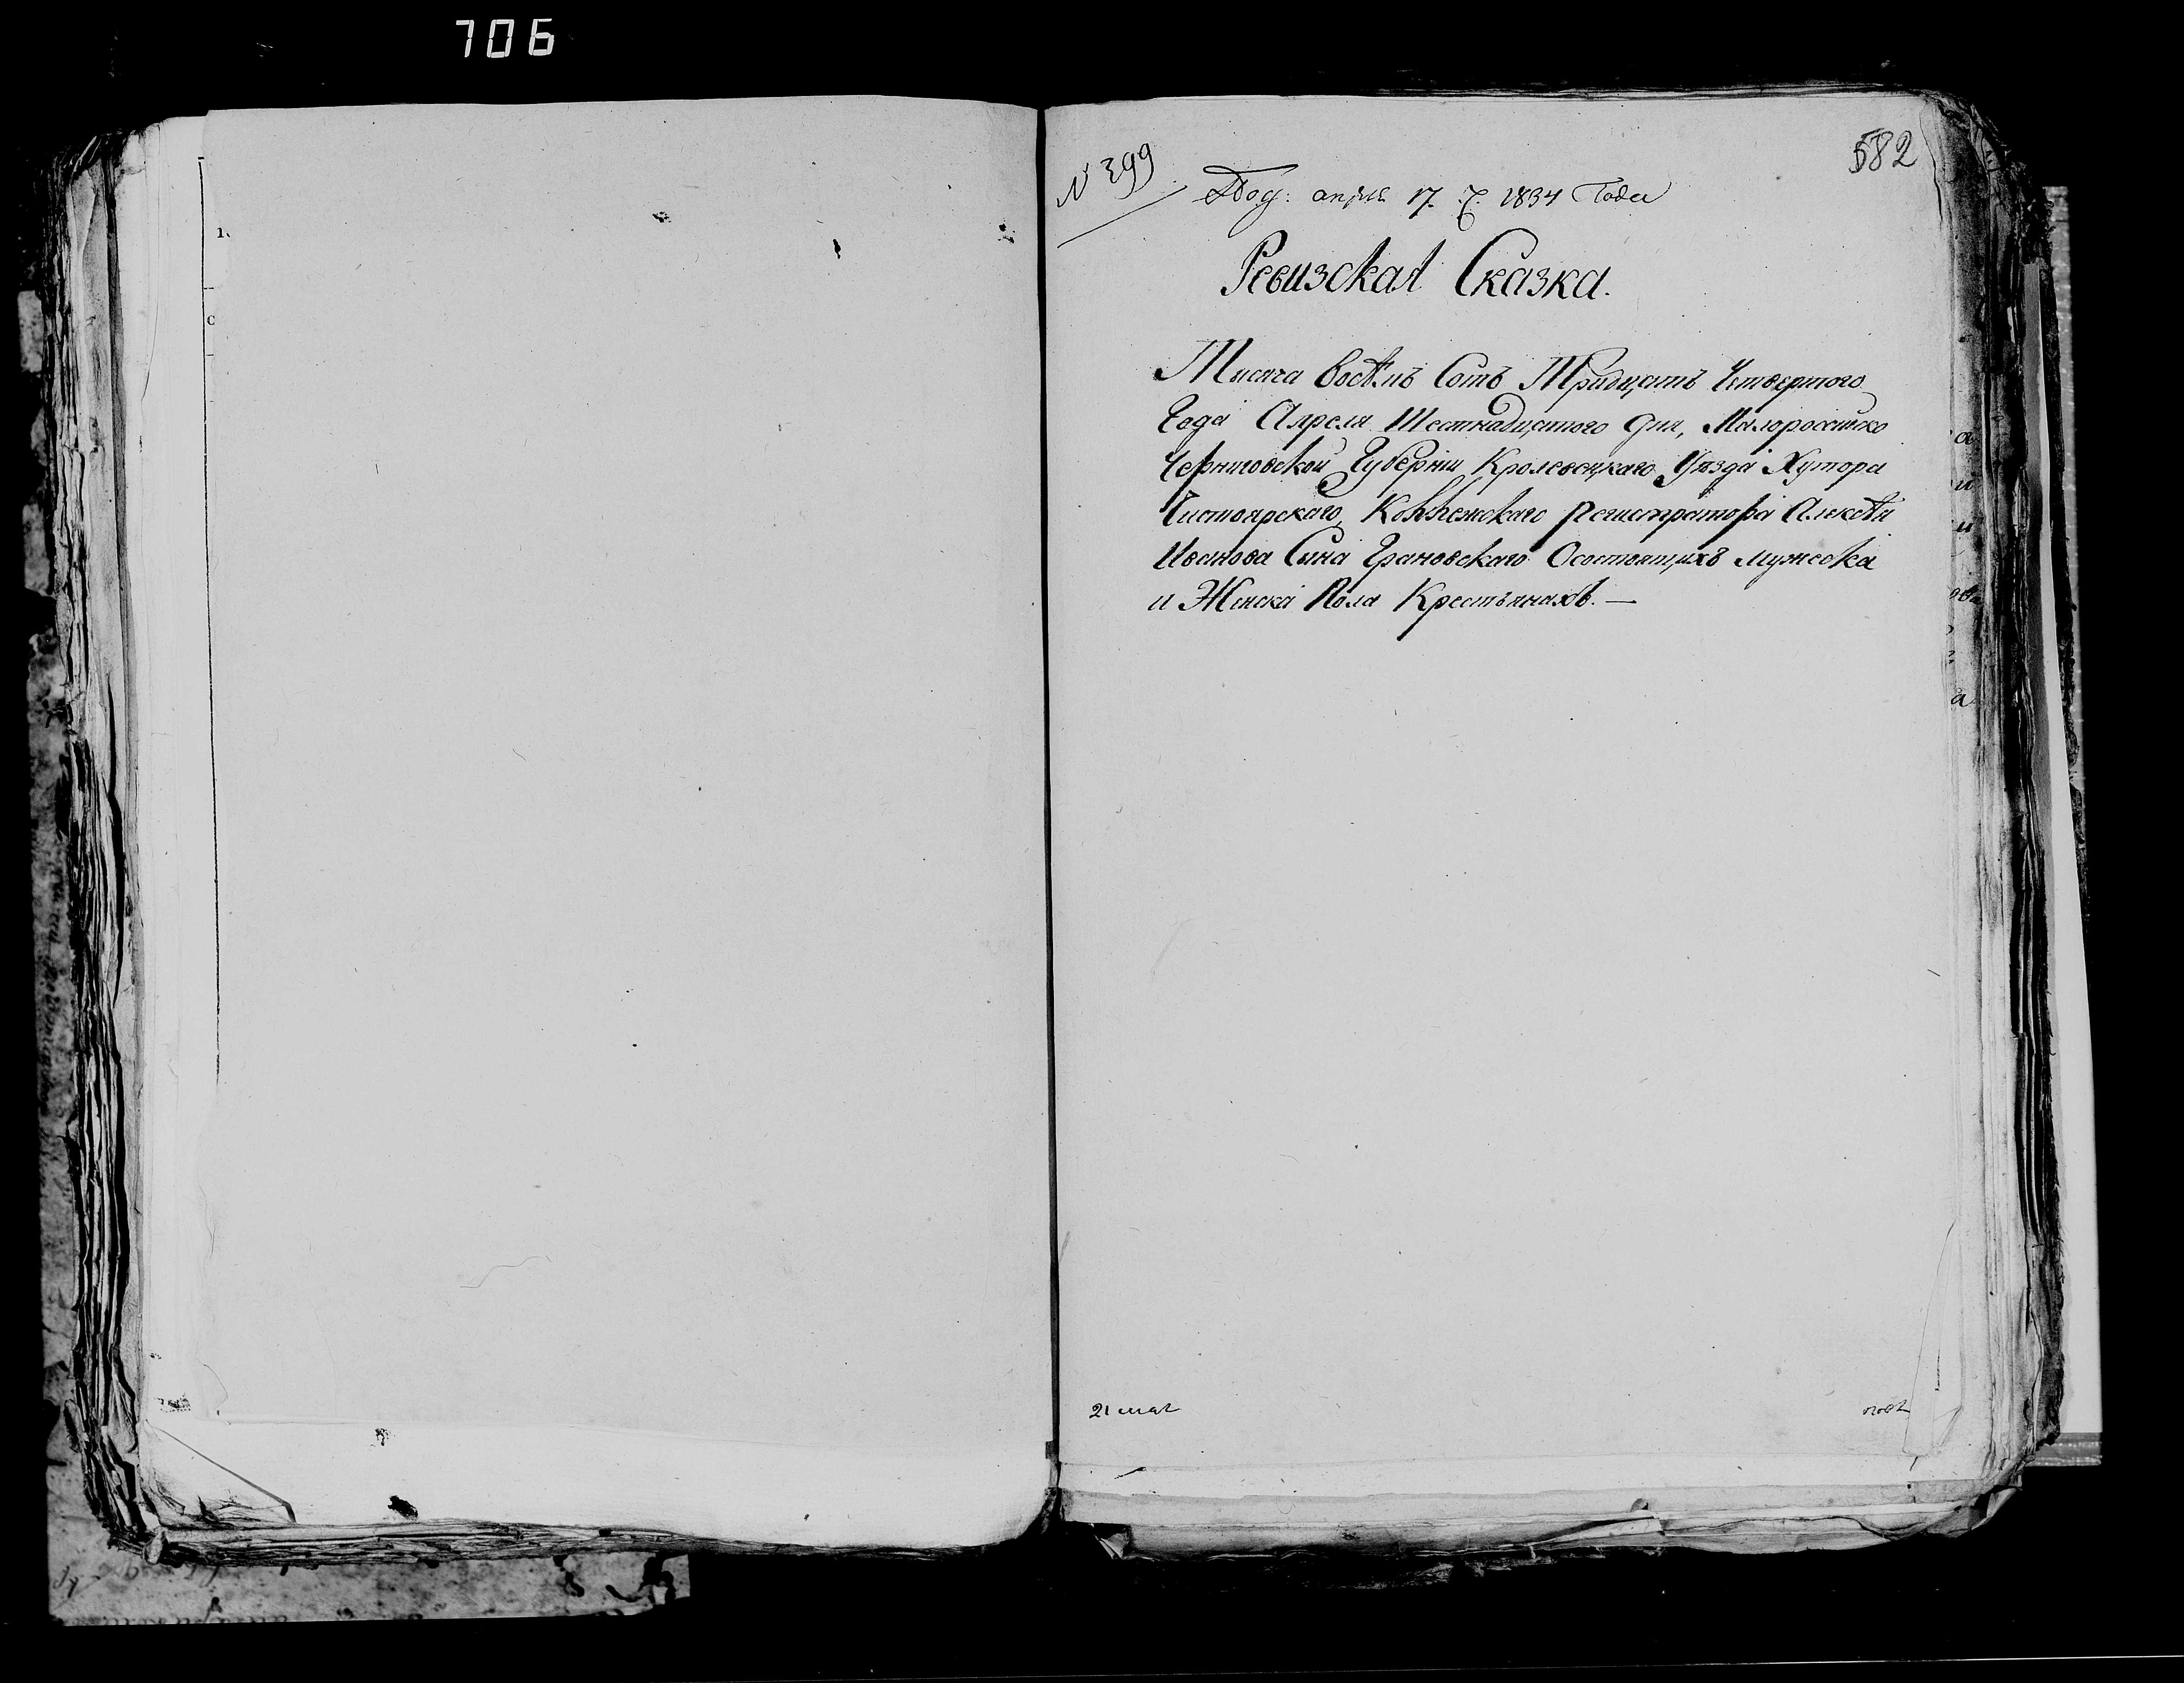 706
582
№ 399
Под: апреля 17. д. 1834 Года
Ревизская Сказка.
Тысяча восемъ Сотъ Тридцать Четвертого
Года Апреля Шестнадцатого дня, Малороссийско
Черниговской Губернии Кролевецкаго Уезда Хутора
Чистоярскаго, Коллежскаго Регистратора Алексея
Иванова Сына Грановскаго Осостоящихъ мужеска
и Женска Пола Крестьянахъ. —
21